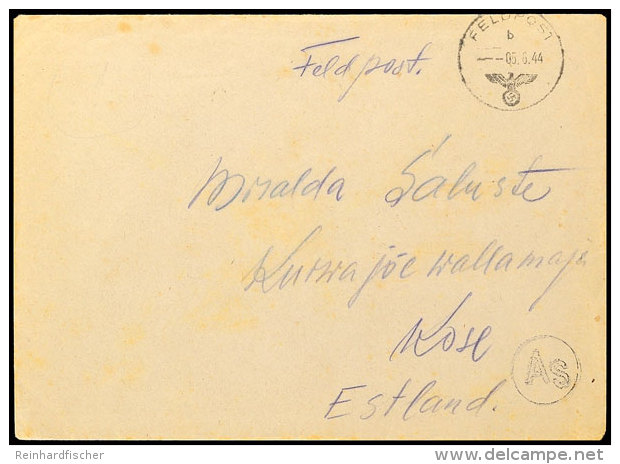 FELDPOST
b
-05.6.44
Feldpost.
Miralda Saluste
Kurwajõe wallamaja
Kose
As
Estland.
Reinhardfischer
delcampe.net